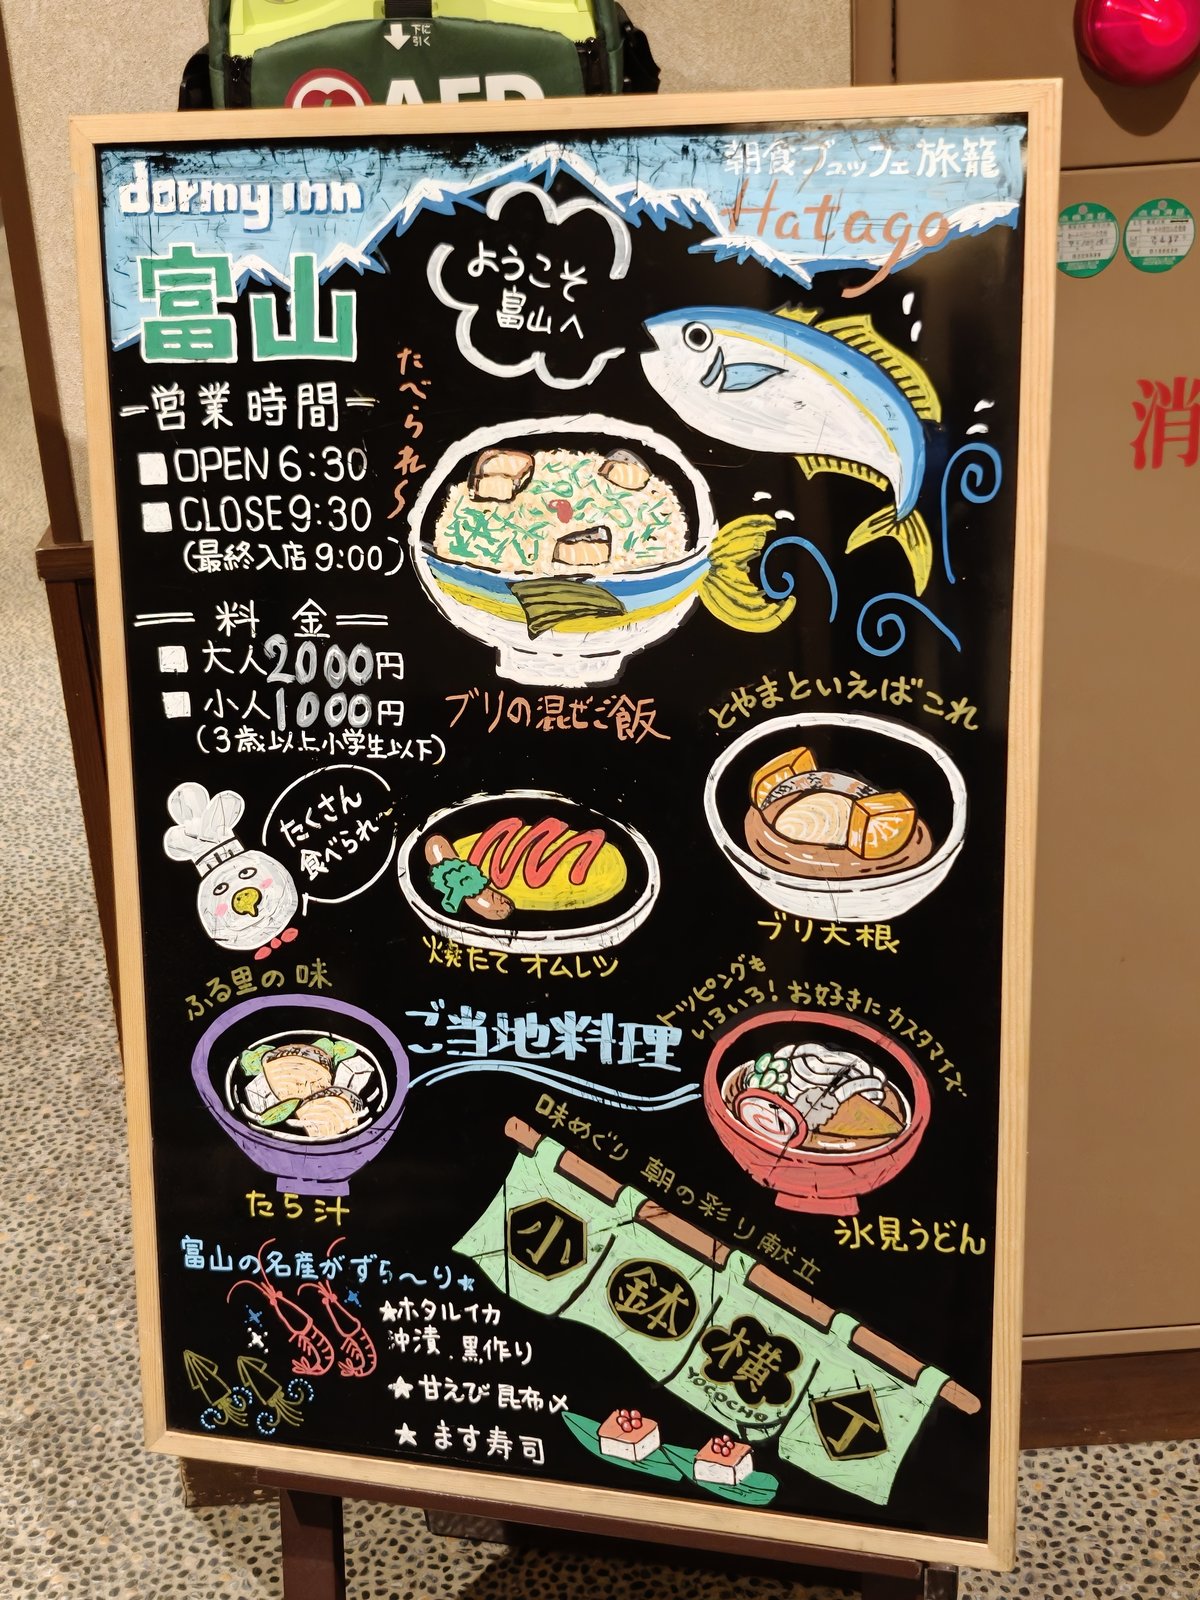 下に
引く
AED
dormy inn
朝食ブュッフェ旅籠
Hatago
富山
ようこそ
富山へ
たべられ〜
-営業時間-
OPEN 6:30
CLOSE 9:30
(最終入店 9:00)
料 金
大人2000円
小人1000円
(3歳以上小学生以下)
ブリの混ぜご飯
とやまといえばこれ
ブリ大根
たくさん
食べられ〜
焼たてオムレツ
ふる里の味
たら汁
ご当地料理
トッピングも
いろいろ! お好きにカスタマイズ
氷見うどん
味めぐり 朝の彩り献立
小鉢横丁
YOCOCHO
富山の名産がずら〜り★
★ホタルイカ
沖漬.黒作り
★甘えび昆布〆
★ます寿司
消